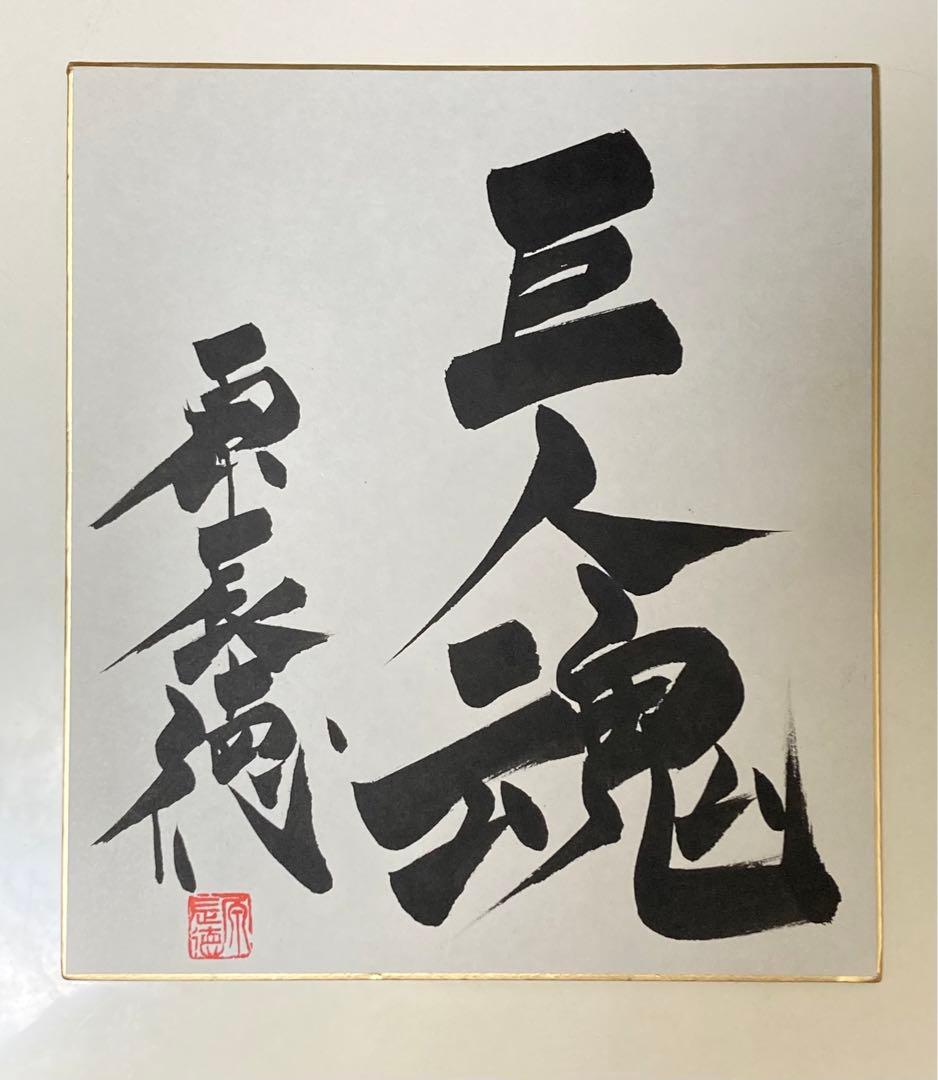 巨人魂
原辰徳
原辰徳